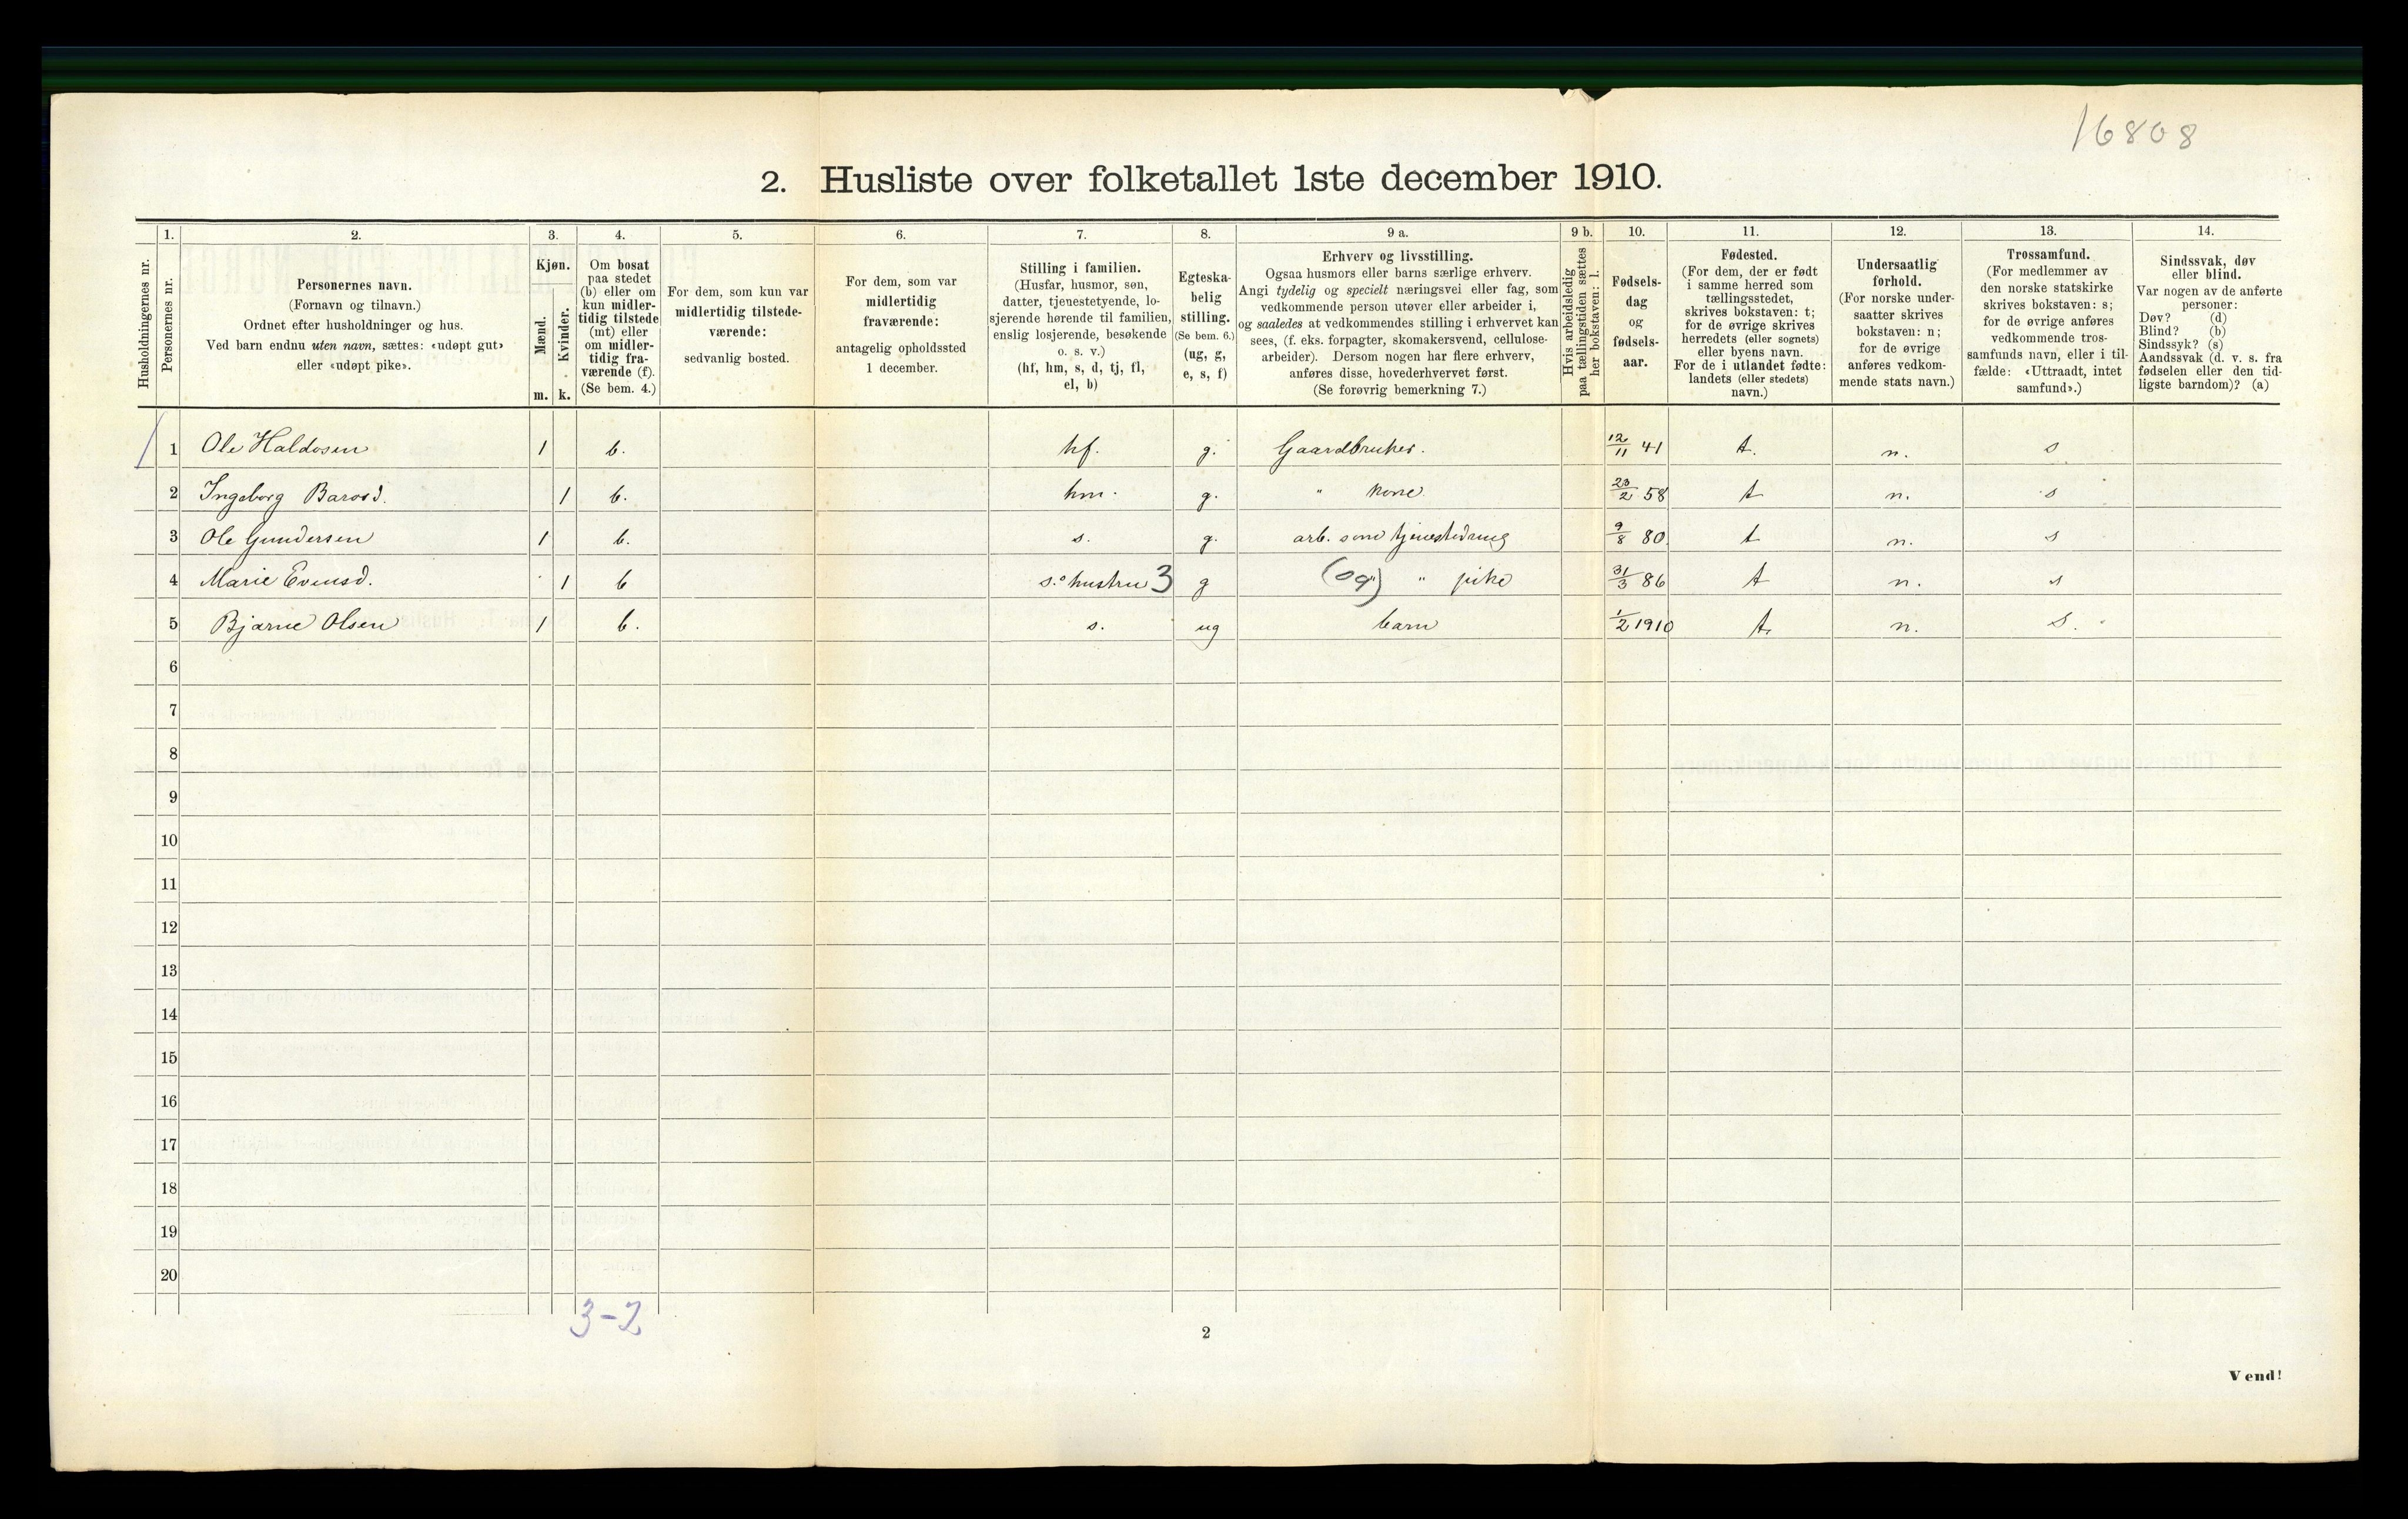 16808
2. Husliste over folketallet 1ste december 1910.
Husholdningernes nr.
1.
Personernes nr.
2.
Personernes navn.
(Fornavn og tilnavn.)
Ordnet efter husholdninger og hus.
Ved barn endnu uten navn, sættes: «udøpt gut»
eller «udøpt pike».
3.
Kjøn.
Mænd.
Kvinder.
m. k.
4.
Om bosat
paa stedet
(b) eller om
kun midler-
tidig tilstede
(mt) eller
om midler-
tidig fra-
værende (f).
(Se bem. 4.)
5.
For dem, som kun var
midlertidig tilstede-
værende:
sedvanlig bosted.
6.
For dem, som var
midlertidig
fraværende:
antagelig opholdssted
1 december.
7.
Stilling i familien.
(Husfar, husmor, søn,
datter, tjenestetyende, lo-
sjerende hørende til familien,
enslig losjerende, besøkende
o. s. v.)
(hf, hm, s, d, tj, fl,
el, b)
8.
Egteska-
belig
stilling.
(Se bem. 6.)
(ug, g,
e, s, f)
9 a.
Erhverv og livsstilling.
Ogsaa husmors eller barns særlige erhverv.
Angi tydelig og specielt næringsvei eller fag, som
vedkommende person utøver eller arbeider i,
og saaledes at vedkommendes stilling i erhvervet kan
sees, (f. eks. forpagter, skomakersvend, cellulose-
arbeider). Dersom nogen har flere erhverv,
anføres disse, hovederhvervet først.
(Se forøvrig bemerkning 7.)
9 b.
Hvis arbeidsledig
paa tællingstiden sættes
her bokstaven: l.
10.
Fødsels-
dag
og
fødsels-
aar.
11.
Fødested.
(For dem, der er født
i samme herred som
tællingsstedet,
skrives bokstaven: t;
for de øvrige skrives
herredets (eller sognets)
eller byens navn.
For de i utlandet fødte:
landets (eller stedets)
navn.)
12.
Undersaatlig
forhold.
(For norske under-
saatter skrives
bokstaven: n;
for de øvrige
anføres vedkom-
mende stats navn.)
13.
Trossamfund.
(For medlemmer av
den norske statskirke
skrives bokstaven: s;
for de øvrige anføres
vedkommende tros-
samfunds navn, eller i til-
fælde: «Uttraadt, intet
samfund».)
14.
Sindssvak, døv
eller blind.
Var nogen av de anførte
personer:
Døv? (d)
Blind? (b)
Sindssyk? (s)
Aandssvak (d. v. s. fra
fødselen eller den tid-
ligste barndom)? (a)
1 Ole Haldosen 1 b. hf. g. Gaardbruker. 12/11 41 t. n. s
2 Ingeborg Barosd. 1 b. hm. g. " kone 23/2 58 t n. s
3 Ole Gundersen 1 b. s. g. arb. som tjenestedreng 9/8 80 t n. s
4 Marie Evensd. 1 b s.s hustru 3 g (og) " pike 31/3 86 t n. s
5 Bjarne Olsen 1 b. s. ug barn 1/2 1910 t. n. s.
6
7
8
9
10
11
12
13
14
15
16
17
18
19
20
3-2
2
Vend!